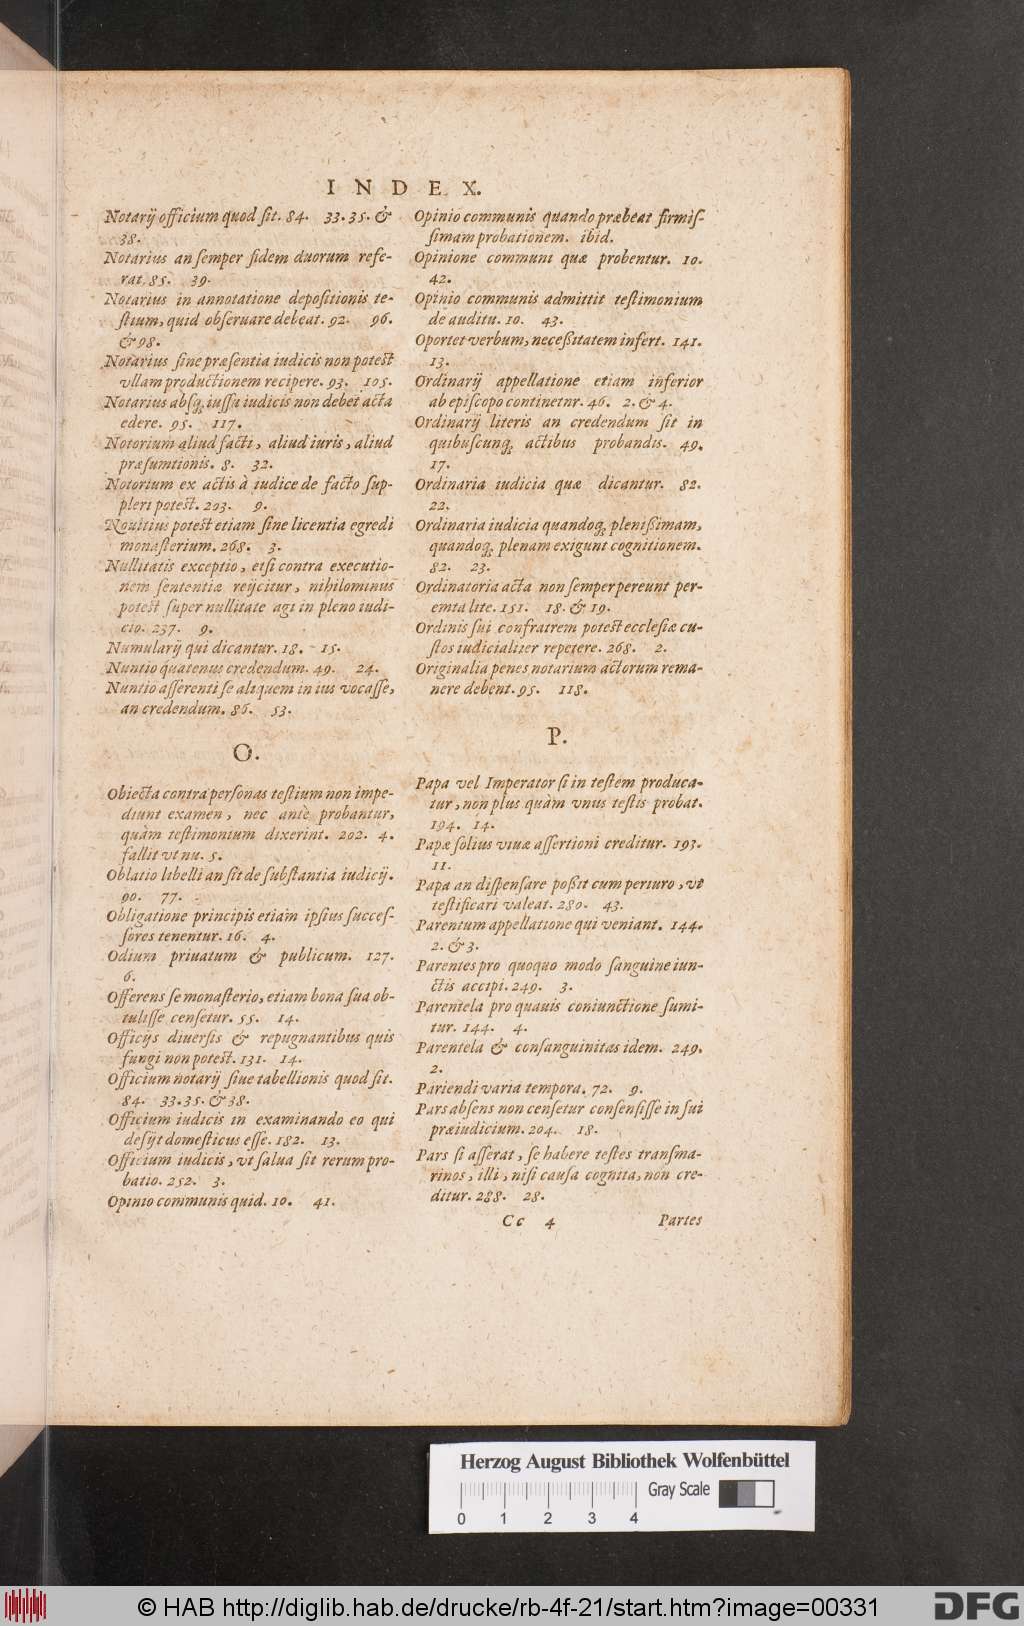 INDEX.
Notarij officium quod ſit. 84. 33. 35. &
38.
Notarius an ſemper fidem duorum refe-
rat. 85. 39.
Notarius in annotatione depoſitionis te-
ſtium, quid obſeruare debeat. 92. 96.
& 98.
Notarius ſine præſentia iudicis non poteſt
vllam productionem recipere. 93. 105.
Notarius abſq; iuſſu iudicis non debet acta
edere. 95. 117.
Notorium aliud facti, aliud iuris, aliud
præſumtionis. 8. 32.
Notorium ex actis à iudice de facto ſup-
pleri poteſt. 203. 9.
Nouitius poteſt etiam ſine licentia egredi
monaſterium. 268. 3.
Nullitatis exceptio, etſi contra executio-
nem ſententiæ reijcitur, nihilominus
poteſt ſuper nullitate agi in pleno iudi-
cio. 237. 9.
Numularij qui dicantur. 18. 15.
Nuntio quatenus credendum. 49. 24.
Nuntio aſſerenti ſe aliquem in ius vocaſſe,
an credendum. 86. 53.
O.
Obiecta contra perſonas teſtium non impe-
diunt examen, nec antè probantur,
quàm teſtimonium dixerint. 202. 4.
fallit vt nu. 5.
Oblatio libelli an ſit de ſubſtantia iudicij.
90. 77.
Obligatione principis etiam ipſius ſucceſ-
ſores tenentur. 16. 4.
Odium priuatum & publicum. 127.
6.
Offerens ſe monaſterio, etiam bona ſua ob-
tuliſſe cenſetur. 55. 14.
Officijs diuerſis & repugnantibus quis
fungi non poteſt. 131. 14.
Officium notarij ſiue tabellionis quod ſit.
84. 33. 35. & 38.
Officium iudicis in examinando eo qui
deſijt domeſticus eſſe. 182. 13.
Officium iudicis, vt ſalua ſit rerum pro-
batio. 252. 3.
Opinio communis quid. 10. 41.
Opinio communis quando præbeat firmiſ-
ſimam probationem. ibid.
Opinione communi quæ probentur. 10.
42.
Opinio communis admittit teſtimonium
de auditu. 10. 43.
Oportet verbum, neceßitatem infert. 141.
13.
Ordinarij appellatione etiam inferior
ab epiſcopo continetnr. 46. 2. & 4.
Ordinarij literis an credendum ſit in
quibuſcunq; actibus probandis. 49.
17.
Ordinaria iudicia quæ dicantur. 82.
22.
Ordinaria iudicia quandoq; plenißimam,
quandoq; plenam exigunt cognitionem.
82. 23.
Ordinatoria acta non ſemper pereunt per-
emta lite. 151. 18. & 19.
Ordinis ſui confratrem poteſt eccleſiæ cu-
ſtos iudicialiter repetere. 268. 2.
Originalia penes notarium actorum rema-
nere debent. 95. 118.
P.
Papa vel Imperator ſi in teſtem produca-
tur, non plus quàm vnus teſtis probat.
194. 14.
Papæ ſolius viuæ aſſertioni creditur. 193.
11.
Papa an diſpenſare poßit cum periuro, vt
teſtificari valeat. 280. 43.
Parentum appellatione qui veniant. 144.
2. & 3.
Parentes pro quoquo modo ſanguine iun-
ctis accipi. 249. 3.
Parentela pro quauis coniunctione ſumi-
tur. 144. 4.
Parentela & conſanguinitas idem. 249.
2.
Pariendi varia tempora. 72. 9.
Pars abſens non cenſetur conſenſiſſe in ſui
præiudicium. 204. 18.
Pars ſi aſſerat, ſe habere teſtes tranſma-
rinos, illi, niſi cauſa cognita, non cre-
ditur. 288. 28.
Cc 4 Partes
Herzog August Bibliothek Wolfenbüttel
Gray Scale
0 1 2 3 4
© HAB http://diglib.hab.de/drucke/rb-4f-21/start.htm?image=00331
DFG